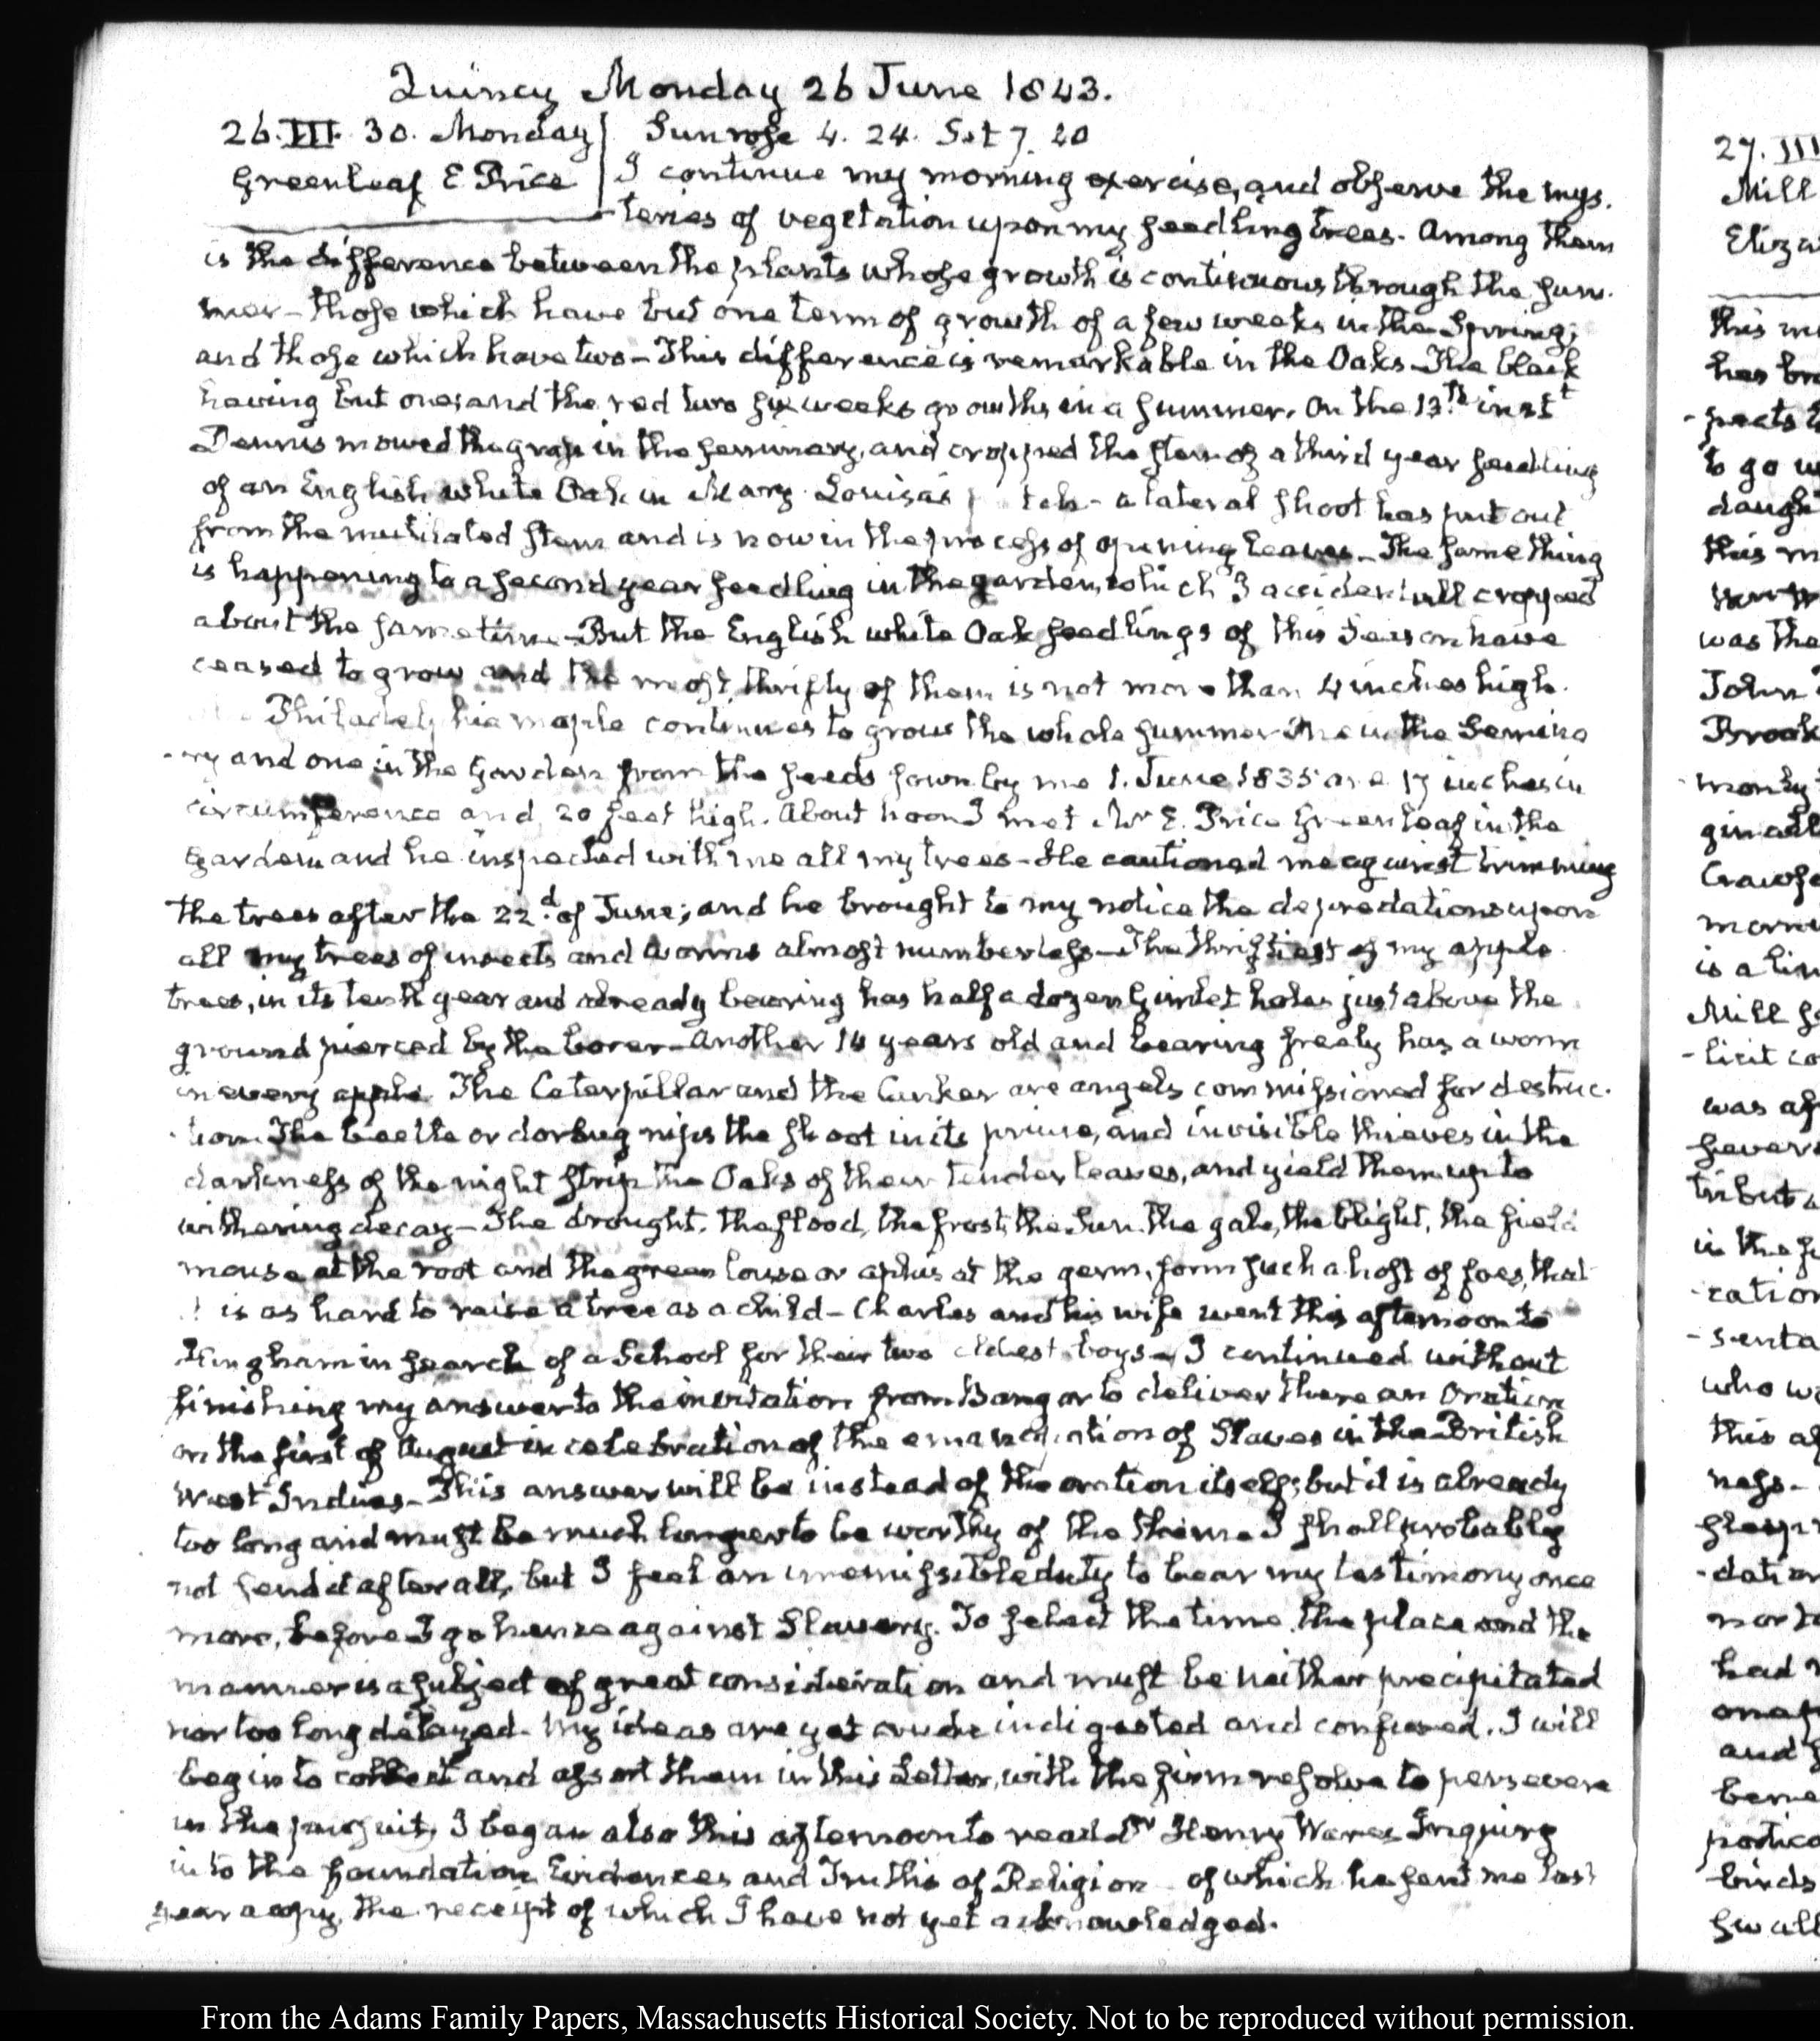 Quincy Monday 26 June 1843.
26. III. 30. Monday
Greenleaf E Price
Sun rose 4. 24. Set 7. 20
I continue my morning exercise, and observe the mys-
-teries of vegetation upon my seedling trees. Among them
is the difference between the plants whose growth is continuous through the sum-
mer - those which have but one term of growth of a few weeks in the Spring;
and those which have two - This difference is remarkable in the Oaks - The black
having but one; and the red two six weeks growths in a summer. On the 13th. inst
Dennis mowed the grass in the seminary, and cropped the stem of a third year seedling
of an English white Oak in Mary Louisa's - a lateral shoot has put out
from the mutilated stem and is now in the process of opening leaves - The same thing
is happening to a second year seedling in the garden, which I cropped
about the same time - But the English white Oak seedlings of this Season have
ceased to grow and the most thrifty of them is not more than 4 inches high.
Philadelphia maple continues to grow the whole summer One in the Semina
-ry and one in the Garden from the seeds sown by me 1. June 1835 are 17 inches in
circumference and 20 feet high. About noon I met Mr E. Price Greenleaf in the
Garden and he inspected with me all my trees - He cautioned me against trimming
the trees after the 22d. of June; and he brought to my notice the depredations upon
all my trees of insects and worms almost numberless - The thriftiest of my apple
trees, in its tenth year and already bearing has half a dozen Gimlet holes just above the
ground pierced by the borer - Another 14 years old and bearing freely has a worm
in every apple. The Caterpillar and the Canker are angels commissioned for destruc-
-tion. The beetle or dorbug nips the shoot in its prime, and invisible thieves in the
darkness of the night strip the Oaks of their tender leaves, and yield them up to
withering decay - The drought, the flood, the frost, the Sun, the gale, the blight, the field
mouse at the root and the green louse or aphis at the germ, form such a host of foes, that
is as hard to raise a tree as a child - Charles and his wife went this afternoon to
Hingham in search of a School for their two eldest boys - I continued without
finishing my answer to the invitation from Bangor to deliver there an Oration
on the first of August in celebration of the emancipation of Slaves in the British
West Indies - This answer will be instead of the oration itself; but it is already
too long and must be much longer to be worthy of the theme I shall probably
not send it after all, but I feel an unremissible duty to bear my testimony once
more, before I go hence against Slavery. To select the time, the place and the
manner is a subject of great consideration and must be neither precipitated
nor too long delayed. My ideas are yet crude indigested and confused. I will
begin to collect and assort them in this Letter, with the firm resolve to persevere
in the pursuit. I began also this afternoon to read Dr Henry Wares Inquiry
into the foundation Evidences and Truths of Religion of which he sent me last
year a copy, the receipt of which I have not yet acknowledged.
27. III
Mill
From the Adams Family Papers, Massachusetts Historical Society. Not to be reproduced without permission.